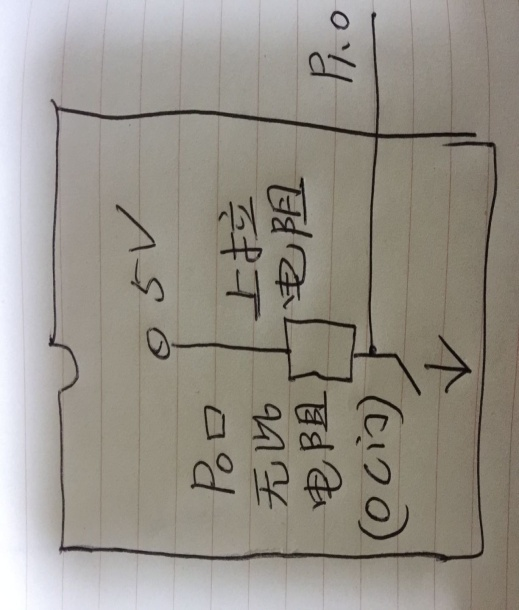 P1.0
5V
上拉
电阻
P0口
无此
电阻
(OC门)